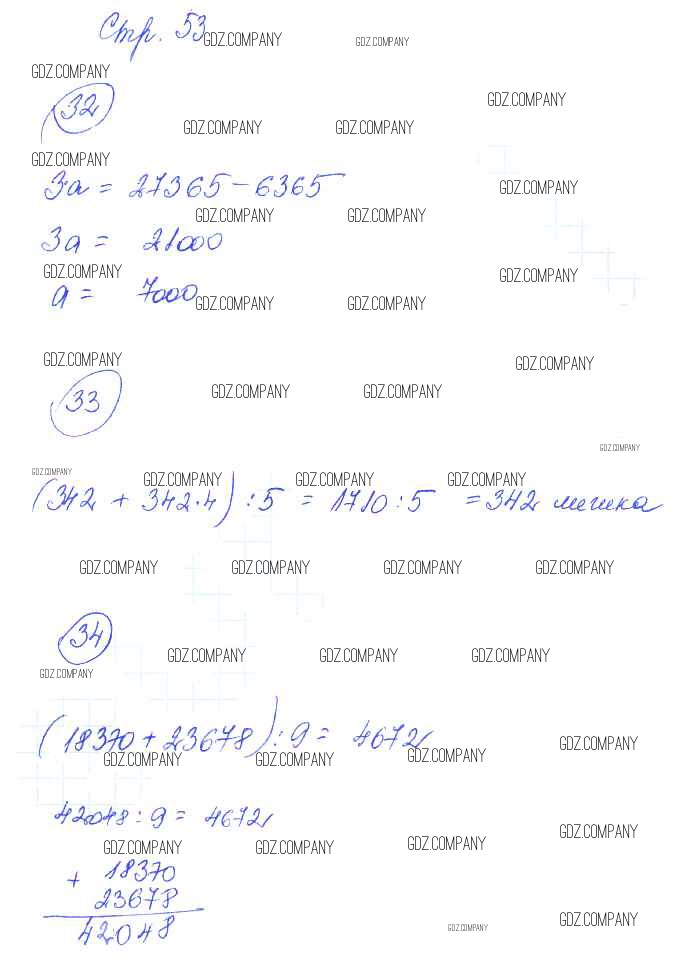 Стр. 53
GDZ.COMPANY GDZ.COMPANY
GDZ.COMPANY
32
GDZ.COMPANY
GDZ.COMPANY GDZ.COMPANY
GDZ.COMPANY
3a = 27365 - 6365
GDZ.COMPANY
GDZ.COMPANY GDZ.COMPANY
3a = 21000
GDZ.COMPANY GDZ.COMPANY
a = 7000
GDZ.COMPANY GDZ.COMPANY
GDZ.COMPANY GDZ.COMPANY
33
GDZ.COMPANY GDZ.COMPANY
GDZ.COMPANY
GDZ.COMPANY GDZ.COMPANY GDZ.COMPANY GDZ.COMPANY
(342 + 342·4) : 5 = 1710 : 5 = 342 мешка
GDZ.COMPANY GDZ.COMPANY GDZ.COMPANY GDZ.COMPANY
34
GDZ.COMPANY GDZ.COMPANY GDZ.COMPANY
GDZ.COMPANY
(18370 + 23678) : 9 = 4672
GDZ.COMPANY GDZ.COMPANY GDZ.COMPANY GDZ.COMPANY
42048 : 9 = 4672
GDZ.COMPANY GDZ.COMPANY GDZ.COMPANY GDZ.COMPANY
+ 18370
23678
42048
GDZ.COMPANY GDZ.COMPANY